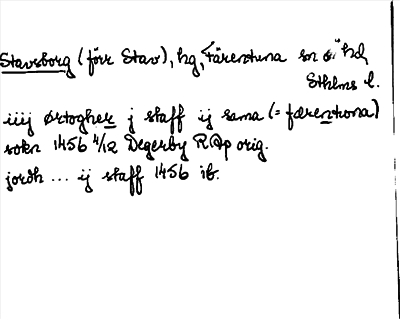 Stavsborg (förr Stav), hg, Färentuna sn o. hd,
Sthlms l.
iiij ørtogher j staff ij sama (= færentuna)
sokn 1456 4/12 Degerby RAp orig.
jordh ... ij staff 1456 ib.